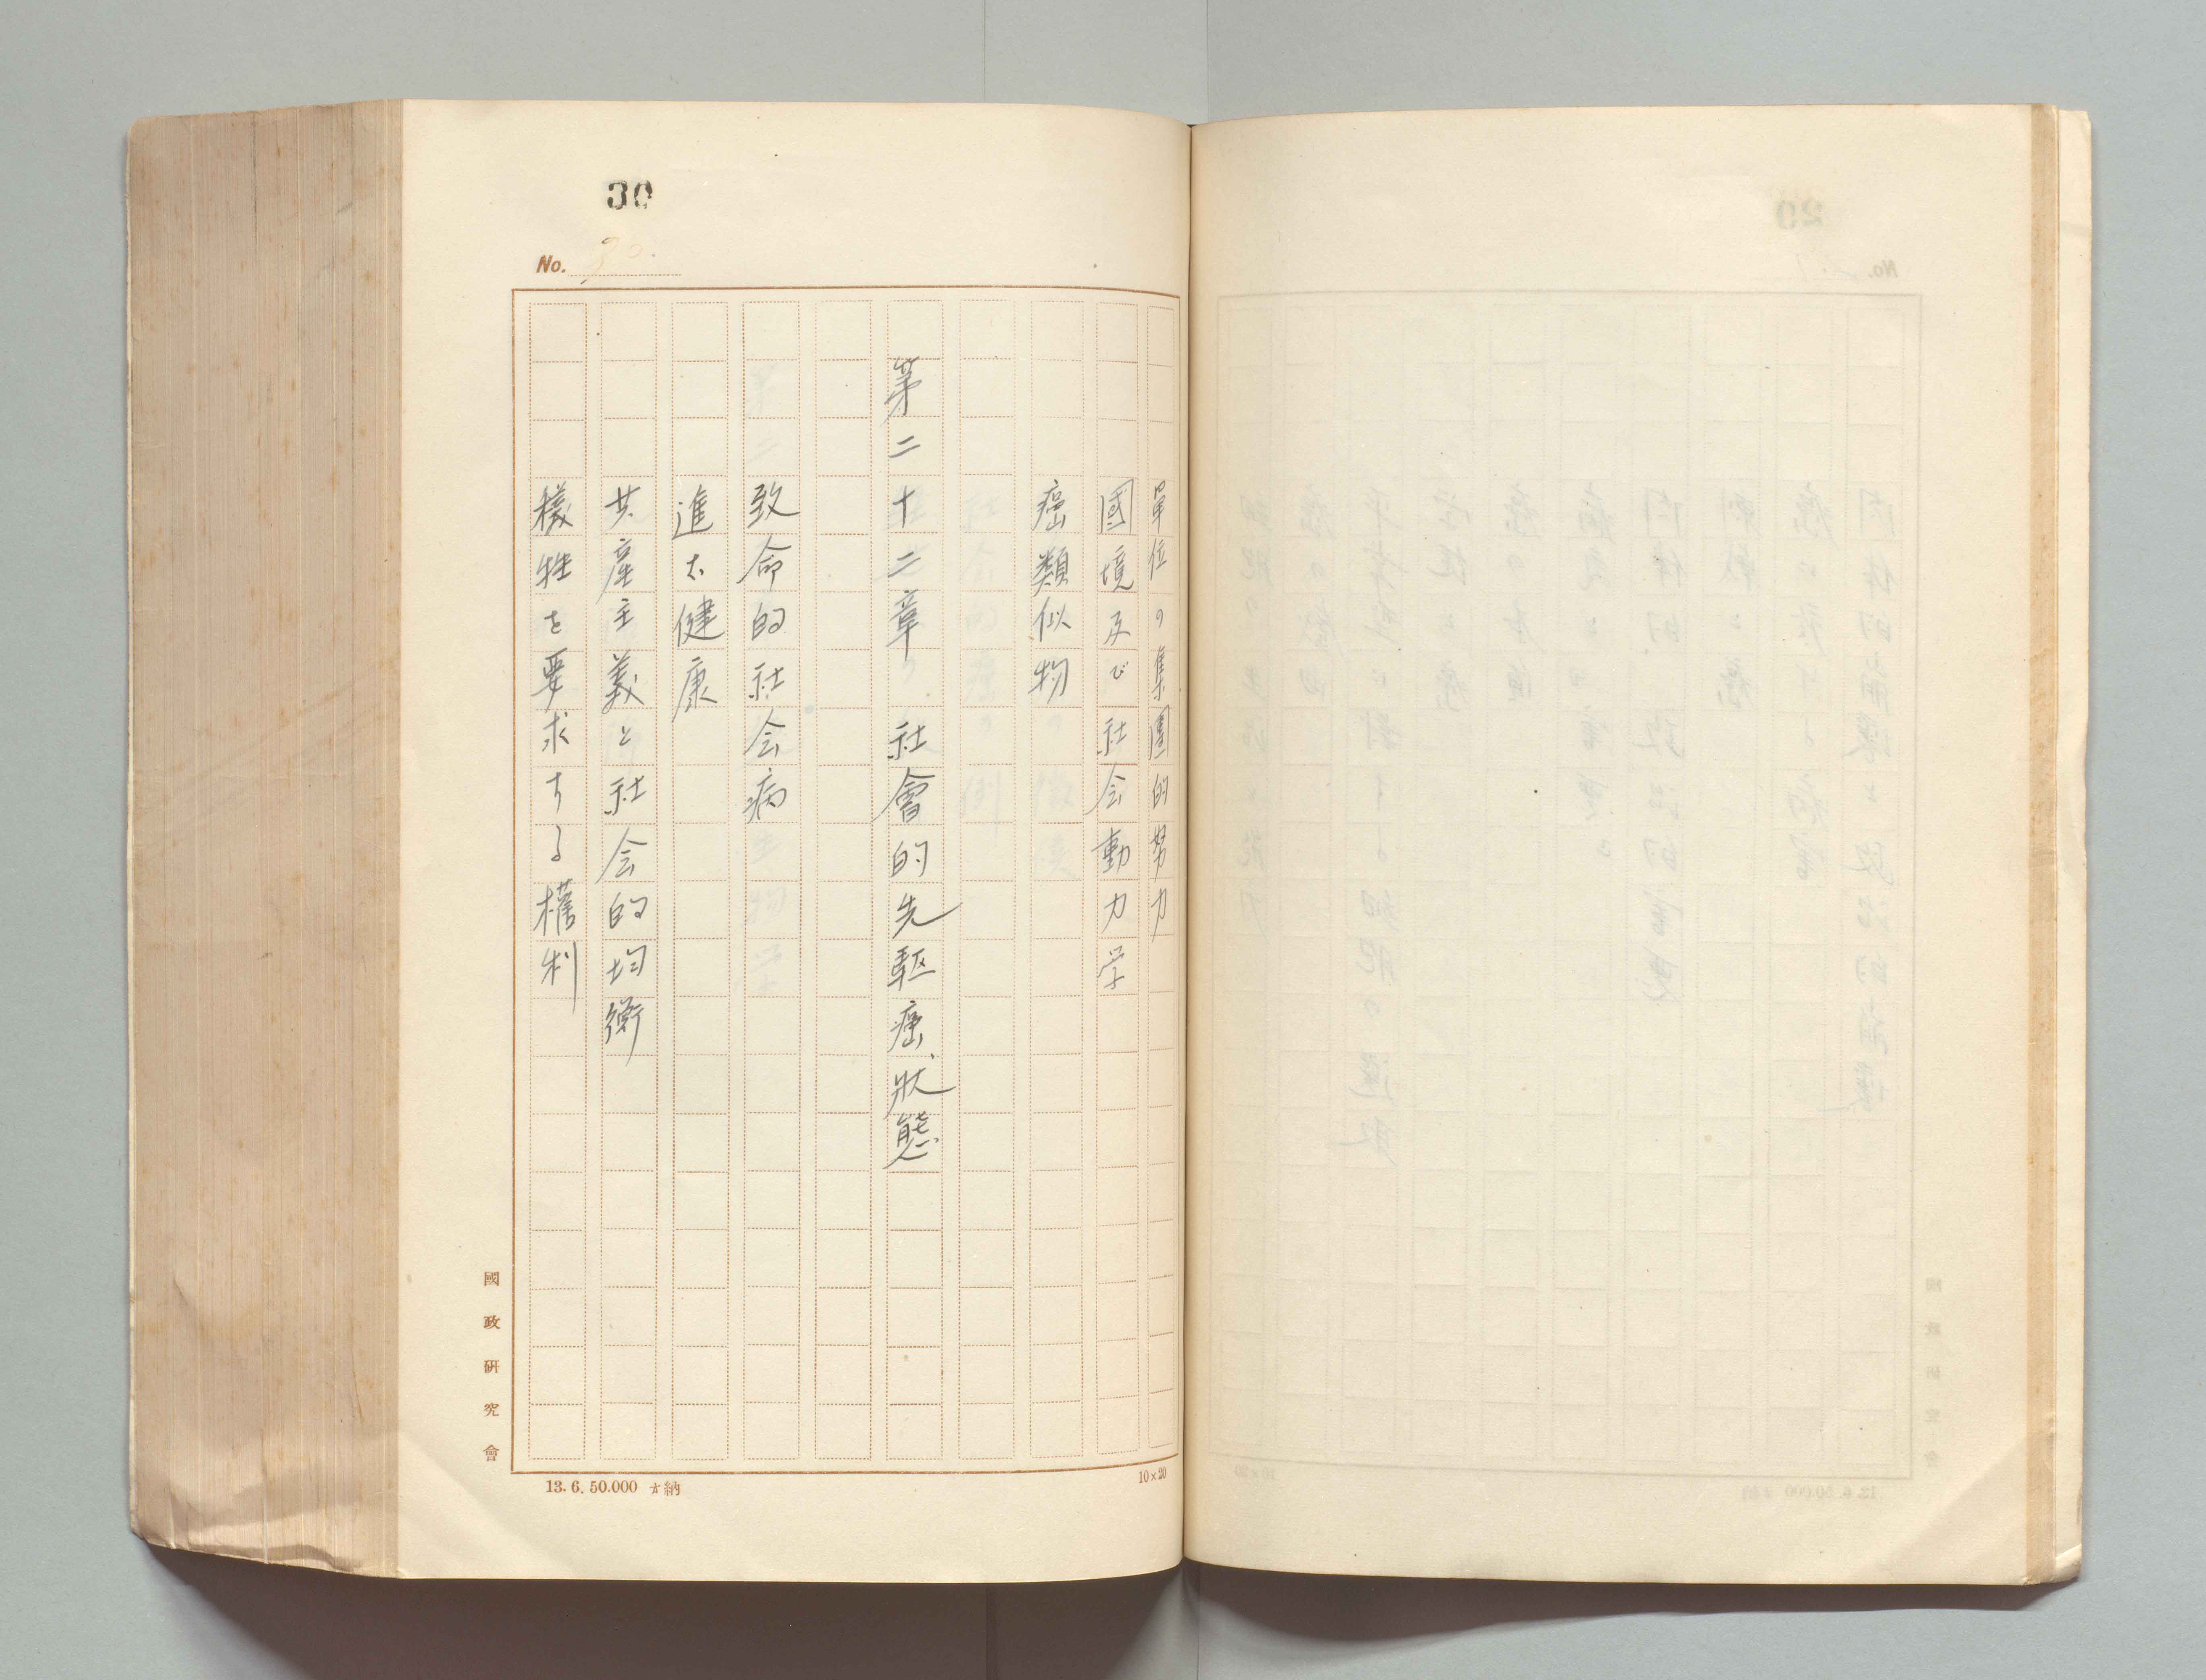 30
No. 30.
單位の集團的努力
國境及び社会動力学
癌類似物
第二十二章 社會的先駆癌状態
致命的社会病
進む健康
共産主義と社会的均衡
犠牲を要求する権利
國政研究會
13.6.50.000 納
10×20